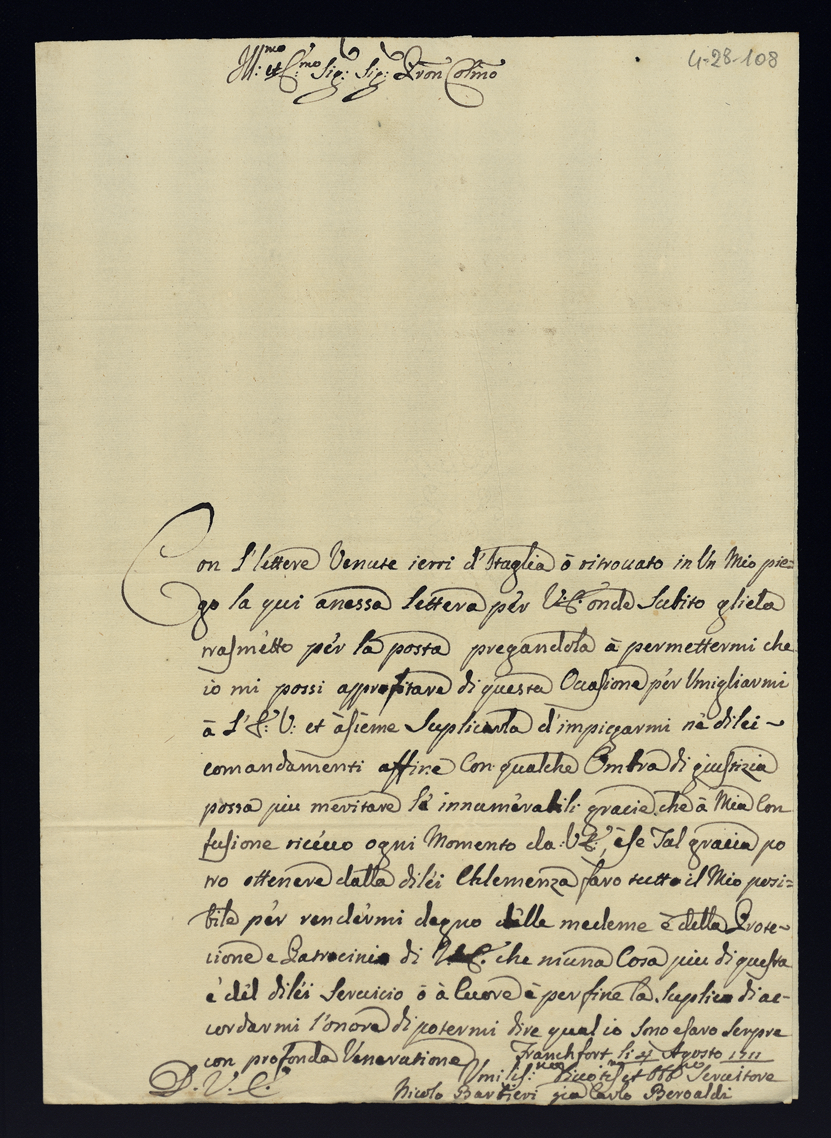 Ill:mo et E:mo Sig: Sig: Pron Colmo
4-28-108
Con l'lettere Venute ierri d'Itaglia ò ritrouato in Un Mio pie=
go la qui anessa lettera pér V:E: onde Subito gliela
trasmétto pér la posta pregandola à permettermi che
io mi possi approfitare di questa Ocasione pér Umigliarmi
à L'E: V: et àsieme Suplicarla d'impiegarmi né dilei ~
comandamenti affine Con qualche Ombra di giustizia
possa piu meritare lé innumérabili gracie che à Mia Con
fusione riceuo ogni Momento da: V:E:, è se Tal gracia po
tro ottenere dalla diléi Chlemenza faro tutto il Mio posi=
bile pér rendérmi degno délle medeme è della Prote~
cione e Patrocinio di V:E: che niuna Cosa piu di questa
é dél diléi Seruicio ò à Cuore è per fine la Suplico di ac~
cordarmi l'onore di potermi dire qual io Sono e saro Senpre
con profonda Veneratione
Franchfort li 4 Agosto 1711
D. V. E.
Umilis:mo Diuotis:mo et Obb:mo Seruitore
Nicolo Barbieri gia Carlo Beroaldi